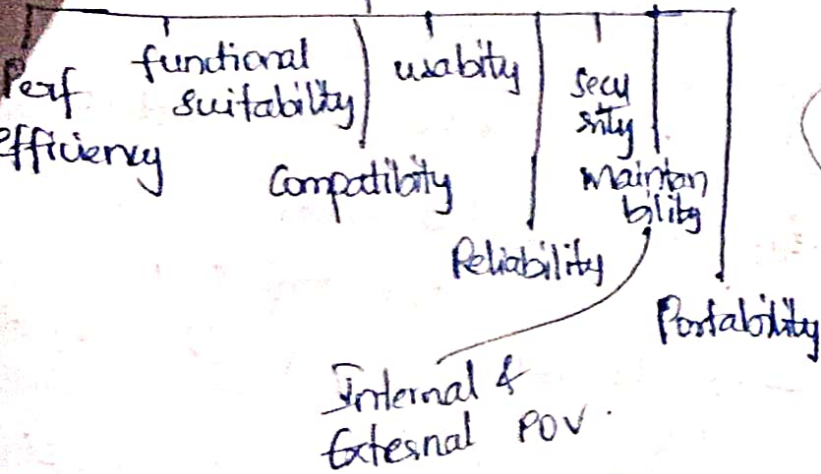 Perf
efficiency
functional
suitability
Compatibity
usabity
Reliability
secu
rity
maintan
bility
Portability
Internal &
External POV.